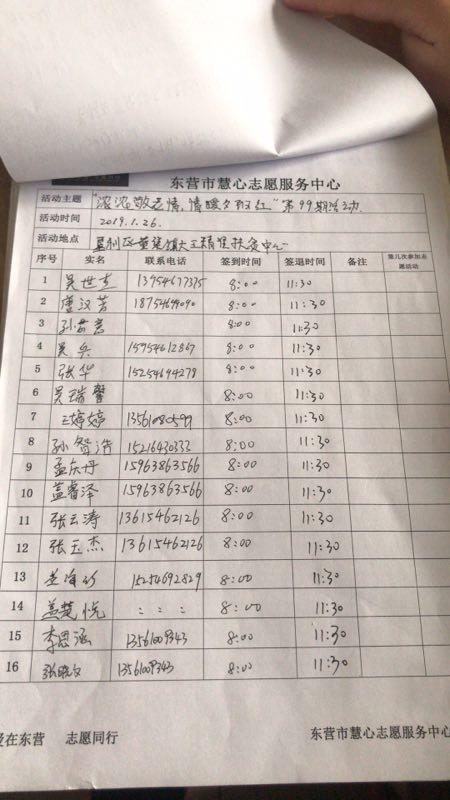 东营市慧心志愿服务中心
活动主题 "浓浓敬老情,情暖夕阳红"第99期活动.
活动时间 2019.1.26.
活动地点 垦利区董集镇大王精准扶贫中心
序号 实名 联系电话 签到时间 签退时间 备注 第几次参加志愿活动
1 吴世吉 13954677375 8:00 11:30
2 唐汉芳 18754699090 8:00 11:30
3 8:00 11:30
4 吴兵 15954612867 8:00 11:30
5 张华 15254694278 8:00 11:30
6 吴瑞馨 8:00 11:30
7 王婷婷 13561080599 8:00 11:30
8 孙智浩 15216430333 8:00 11:30
9 孟庆丹 15963863566 8:00 11:30
10 盖睿泽 15963863566 8:00 11:30
11 张云涛 13615462126 8:00 11:30
12 张玉杰 13615462126 8:00 11:30
13 15254692829 8:00 11:30
14 盖楚悦 : : : 8:00 11:30
15 李恩涵 13561009343 8:00 11:30
16 张晓文 13561009343 8:00 11:30
爱在东营 志愿同行 东营市慧心志愿服务中心